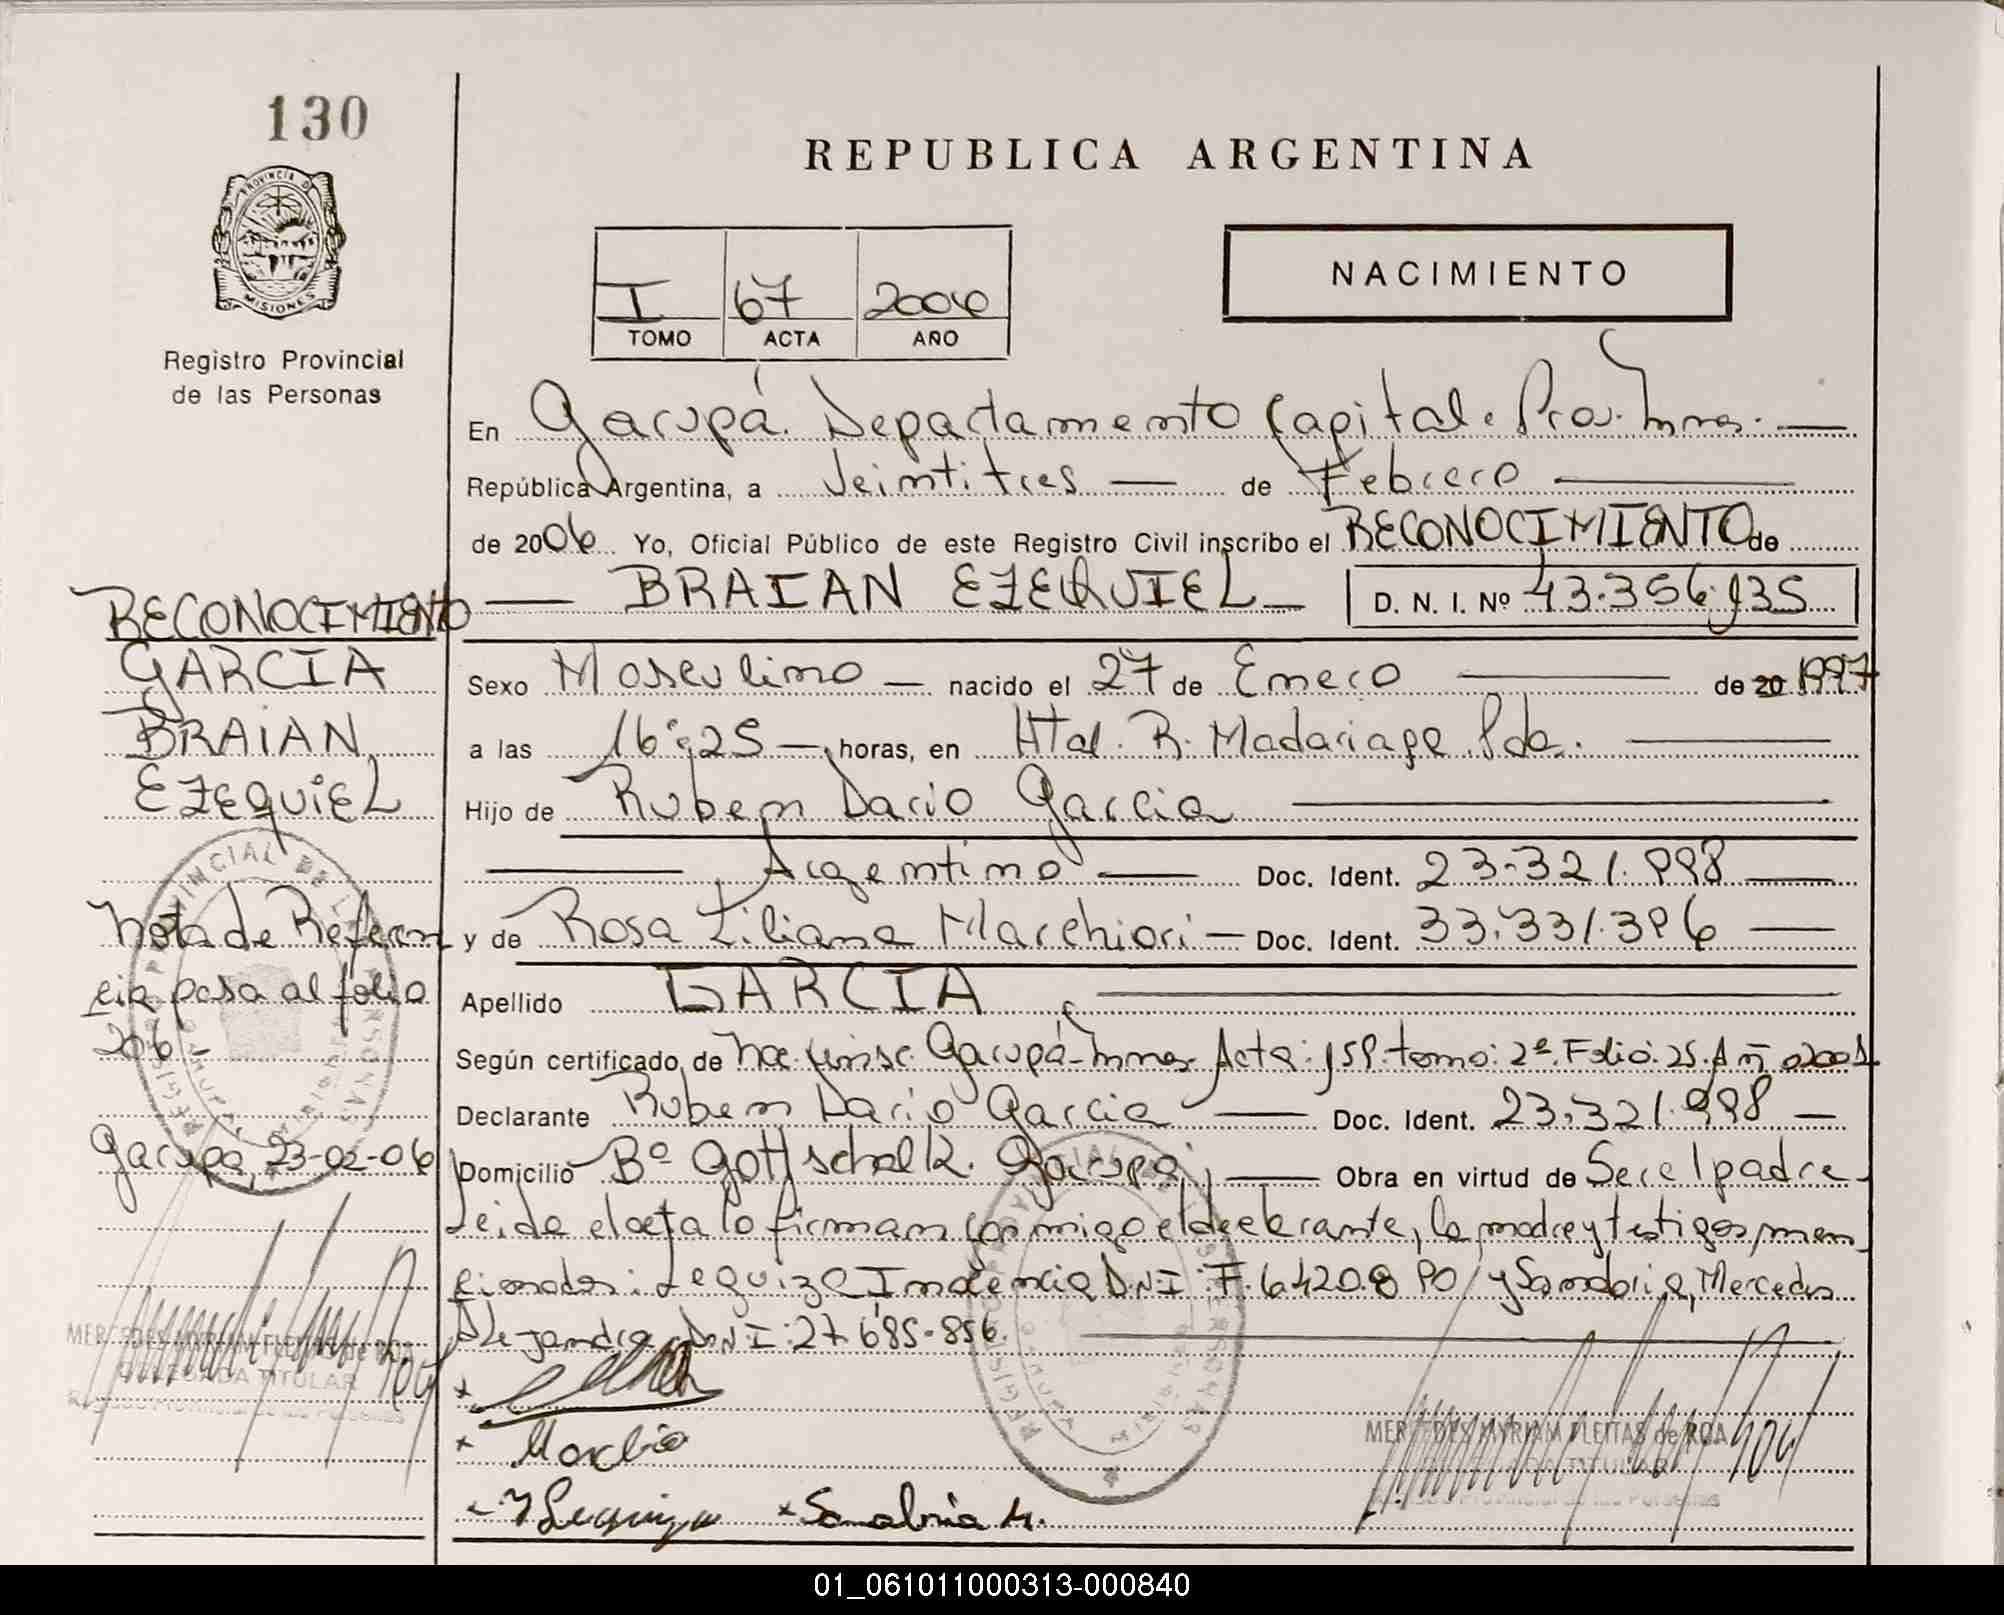 130
REPUBLICA ARGENTINA
PROVINCIA D
MISIONES
Registro Provincial
de las Personas
NACIMIENTO
I 67 2006
TOMO ACTA AÑO
En Garupá. Departamento Capital. Prov. Mnes.
República Argentina, a Veintitres de Febrero
de 2006 Yo, Oficial Público de este Registro Civil inscribo el RECONOCIMIENTO de
BRAIAN EZEQUIEL D. N. I. Nº 43.356.935
Sexo Masculino nacido el 27 de Enero de 20 1997
a las 16:25 horas, en Htal. R. Madariaga Pdas.
Hijo de Ruben Dario Garcia
Argentino Doc. Ident. 23.321.998
y de Rosa Liliana Marchiori Doc. Ident. 33.331.396
Apellido GARCIA
Según certificado de Nac. Garupá-Mnes. Acta: 159. tomo: 2º. Folio: 25. Año 2001
Declarante Ruben Dario Garcia Doc. Ident. 23.321.998
Domicilio Bº Gottschalk. Garupá, Obra en virtud de Ser el padre
Leida el acta lo firman conmigo el declarante, la madre y testigos men
cionados: Leguiza Indencia D.N.I: F. 6.420.890 y Sanabria, Mercedes
Alejandra D.N.I: 27.685.856.
RECONOCIMIENTO
GARCIA
BRAIAN
EZEQUIEL
Nota de Referen
cia pasa al folio
206
Garupá, 23-02-06
MERCEDES MYRIAM FLEITAS de ROA
DELEGADA TITULAR
Registro Provincial de las Personas
MERCEDES MYRIAM FLEITAS de ROA
DELEGADA TITULAR
Registro Provincial de las Personas
Sanabria M.
01_061011000313-000840